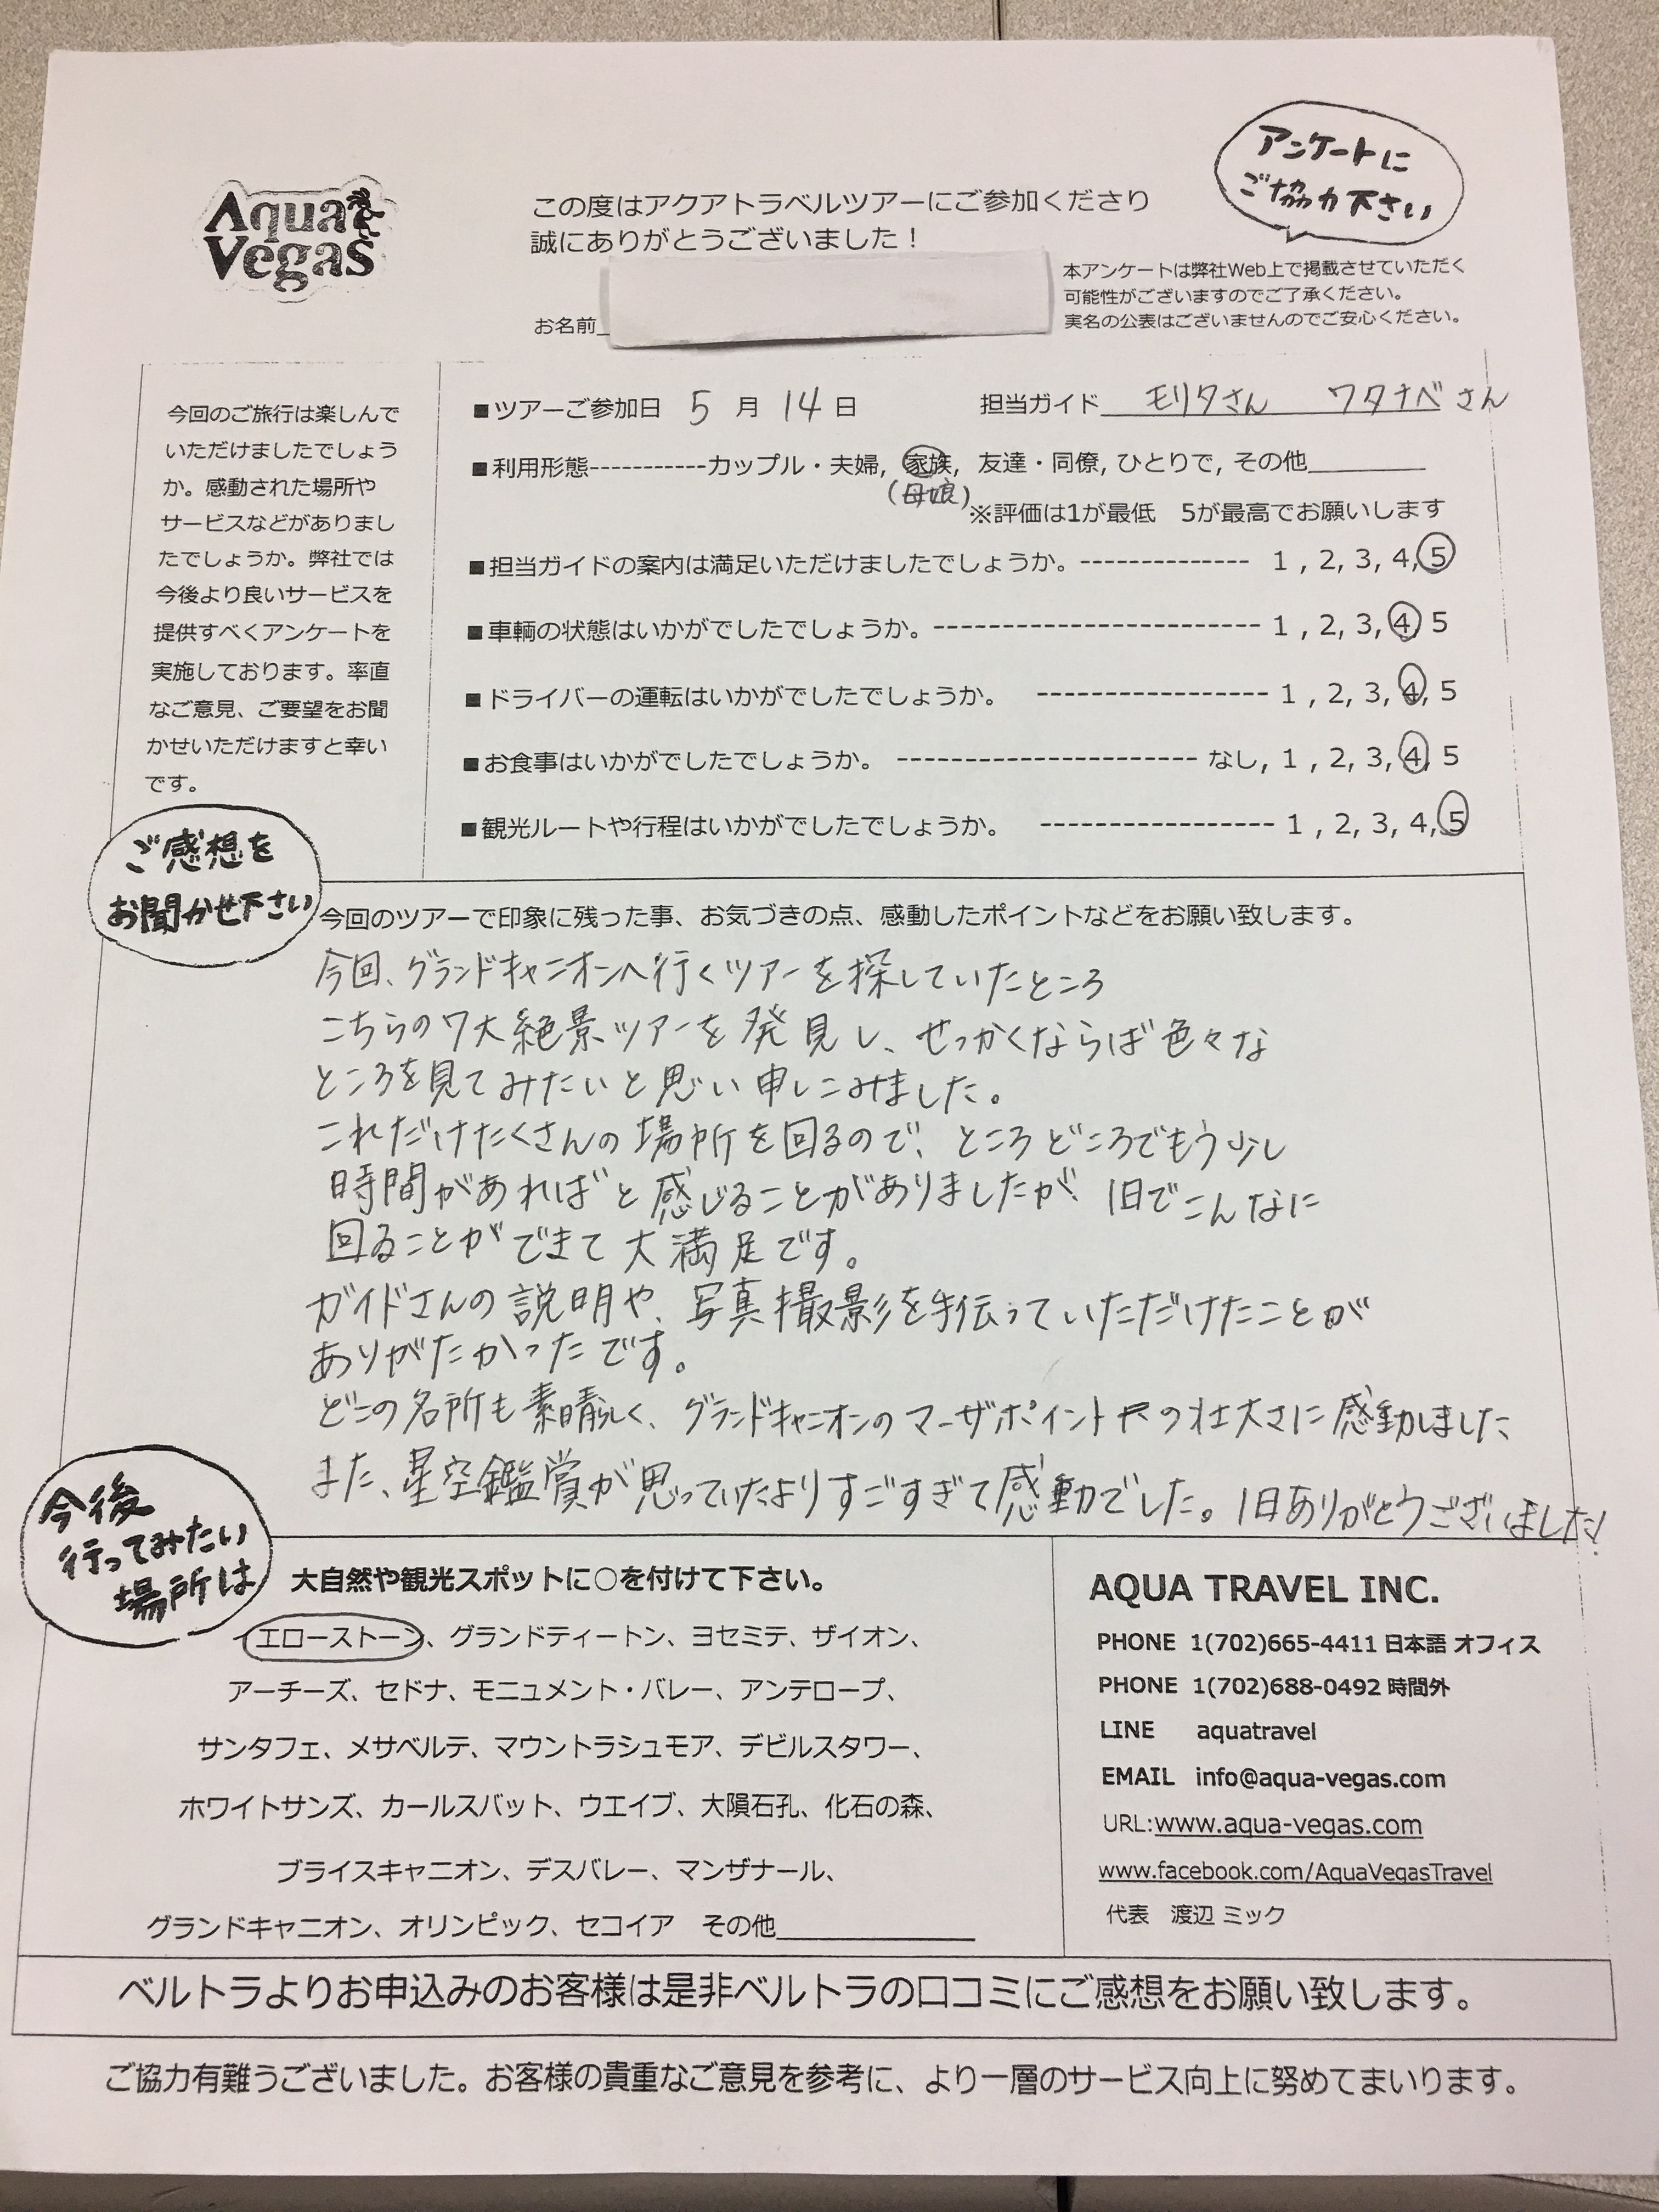 Aqua
Vegas
この度はアクアトラベルツアーにご参加くださり
誠にありがとうございました！
アンケートに
ご協力下さい
本アンケートは弊社Web上で掲載させていただく
可能性がございますのでご了承ください。
実名の公表はございませんのでご安心ください。
お名前
今回のご旅行は楽しんで
いただけましたでしょう
か。感動された場所や
サービスなどがありまし
たでしょうか。弊社では
今後より良いサービスを
提供すべくアンケートを
実施しております。率直
なご意見、ご要望をお聞
かせいただけますと幸い
です。
■ツアーご参加日 5 月 14 日 担当ガイド モリタさん ワタナベさん
■利用形態-----------カップル・夫婦, 家族, 友達・同僚, ひとりで, その他________
(母娘)
※評価は1が最低 5が最高でお願いします
■担当ガイドの案内は満足いただけましたでしょうか。------------- 1 , 2, 3, 4, 5
■車輌の状態はいかがでしたでしょうか。------------------------ 1 , 2, 3, 4, 5
■ドライバーの運転はいかがでしたでしょうか。 ----------------- 1 , 2, 3, 4, 5
■お食事はいかがでしたでしょうか。 ---------------------- なし, 1 , 2, 3, 4, 5
■観光ルートや行程はいかがでしたでしょうか。 ----------------- 1 , 2, 3, 4, 5
ご感想を
お聞かせ下さい
今回のツアーで印象に残った事、お気づきの点、感動したポイントなどをお願い致します。
今回、グランドキャニオンへ行くツアーを探していたところ
こちらの7大絶景ツアーを発見し、せっかくならば色々な
ところを見てみたいと思い申しこみました。
これだけたくさんの場所を回るので、ところどころでもう少し
時間があればと感じることがありましたが、1日でこんなに
回ることができて大満足です。
ガイドさんの説明や、写真撮影を手伝っていただけたことが
ありがたかったです。
どこの名所も素晴らしく、グランドキャニオンのマーザポイントの壮大さに感動しました
また、星空鑑賞が思っていたよりすごすぎて感動でした。1日ありがとうございました！
今後
行ってみたい
場所は
大自然や観光スポットに○を付けて下さい。
イエローストーン、グランドティートン、ヨセミテ、ザイオン、
アーチーズ、セドナ、モニュメント・バレー、アンテロープ、
サンタフェ、メサベルテ、マウントラシュモア、デビルスタワー、
ホワイトサンズ、カールスバット、ウエイブ、大隕石孔、化石の森、
ブライスキャニオン、デスバレー、マンザナール、
グランドキャニオン、オリンピック、セコイア その他______________
AQUA TRAVEL INC.
PHONE 1(702)665-4411 日本語 オフィス
PHONE 1(702)688-0492 時間外
LINE aquatravel
EMAIL info@aqua-vegas.com
URL:www.aqua-vegas.com
www.facebook.com/AquaVegasTravel
代表 渡辺 ミック
ベルトラよりお申込みのお客様は是非ベルトラの口コミにご感想をお願い致します。
ご協力有難うございました。お客様の貴重なご意見を参考に、より一層のサービス向上に努めてまいります。